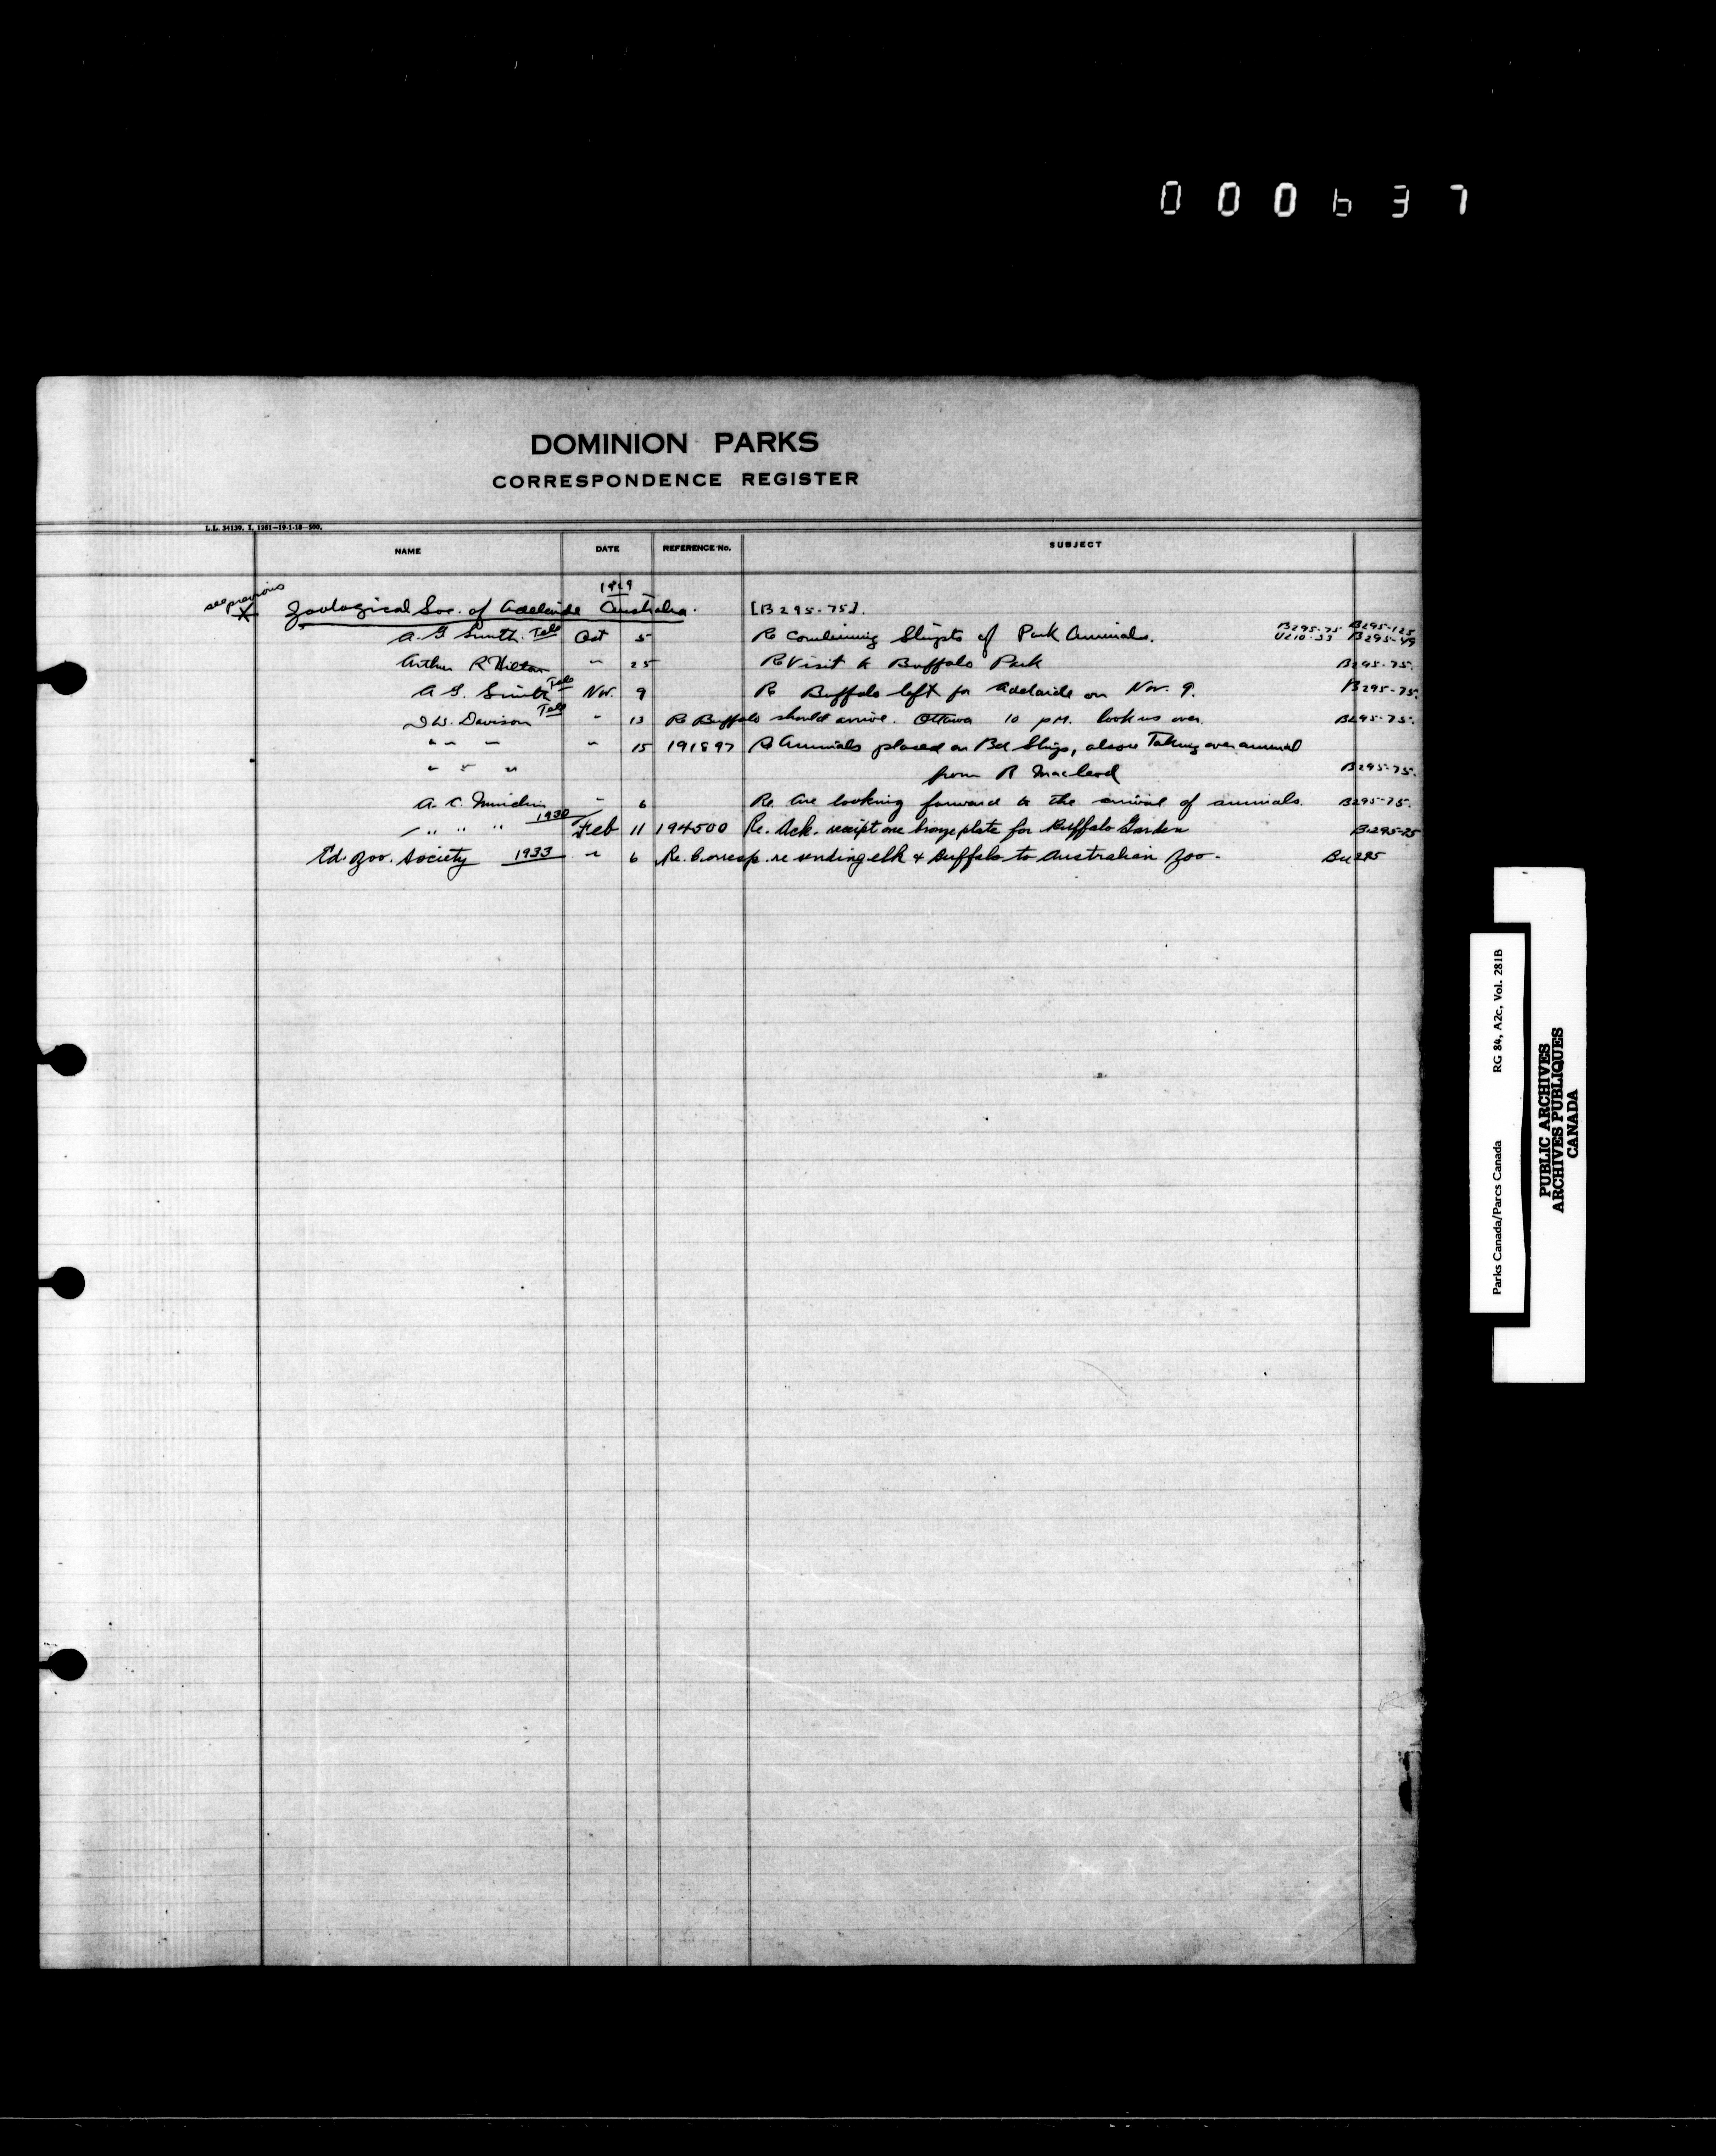 000637
DOMINION PARKS
CORRESPONDENCE REGISTER
L.L. 34139. T. 1261—19-1-18—500.
NAME DATE REFERENCE No. SUBJECT
1929
see previous X Zoological Soc. of Adelaide Australia. [B295-75].
A. G. Smith. Tele Oct 5 Re Combining Shipts of Park Animals. B295-75 B295-125
U210-33 B295-49
Arthur R Hilton " 25 Re Visit to Buffalo Park B295-75.
A. G. Smith Tele Nov. 9 Re Buffalo left for Adelaide on Nov. 9. B295-75.
D.W. Davison Tele " 13 Re Buffalo should arrive. Ottawa 10 P.M. look us over. B295-75.
" " " " 15 191897 Re Animals placed on Bd Ships, also Taking over animal
" " " from R Macleod B295-75.
A. C. Minchin " 6 Re. Are looking forward to the arrival of animals. B295-75.
" " " " 1930 Feb 11 194500 Re. Ack. receipt one bronze plate for Buffalo Garden B295-75
Ed. Zoo. Society 1933 " 6 Re. Corresp. re sending elk & Buffalo to Australian Zoo. Bu295
Parks Canada/Parcs Canada RG 84, A2c, Vol. 281B
PUBLIC ARCHIVES
ARCHIVES PUBLIQUES
CANADA